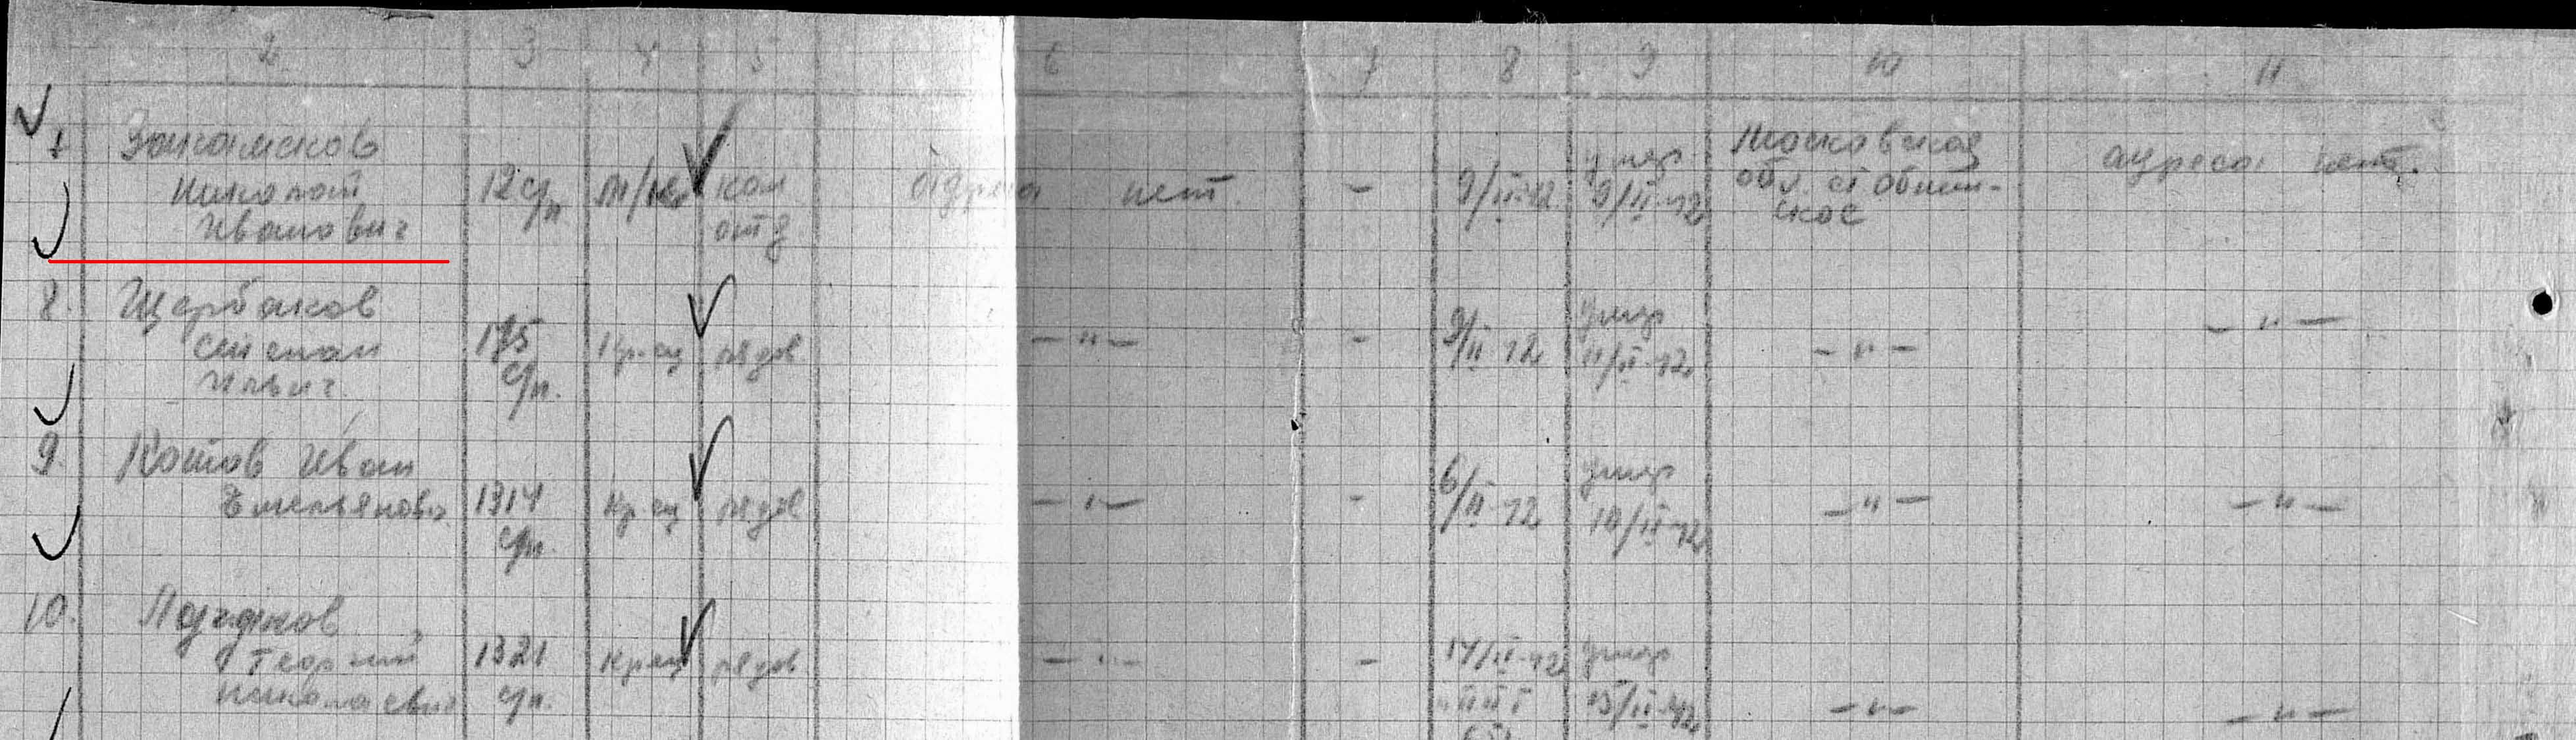 2 3 4 5 6 7 8 9 10 11
Закамсков 12 с/п кол адреса нет. - 9/II-42 умер 9/II-42 Московская адреса нет.
обл. ст Обнин-
ское
Иванович отд
8. Щербаков
Степан с/п. Кр-ец рядов -"- - 9/II-42 умер 11/II-42 -"- -"-
Ильич.
9. Котов Иван
Емельянов. 1314 Кр-ец рядов -"- - 6/II-42 умер 10/II-42 -"- -"-
с/п.
10.
Георгий 1321 Кр-ец рядов -"- - 14/II-42 умер
Николаевич с/п. 15/II-42 -"- -"-